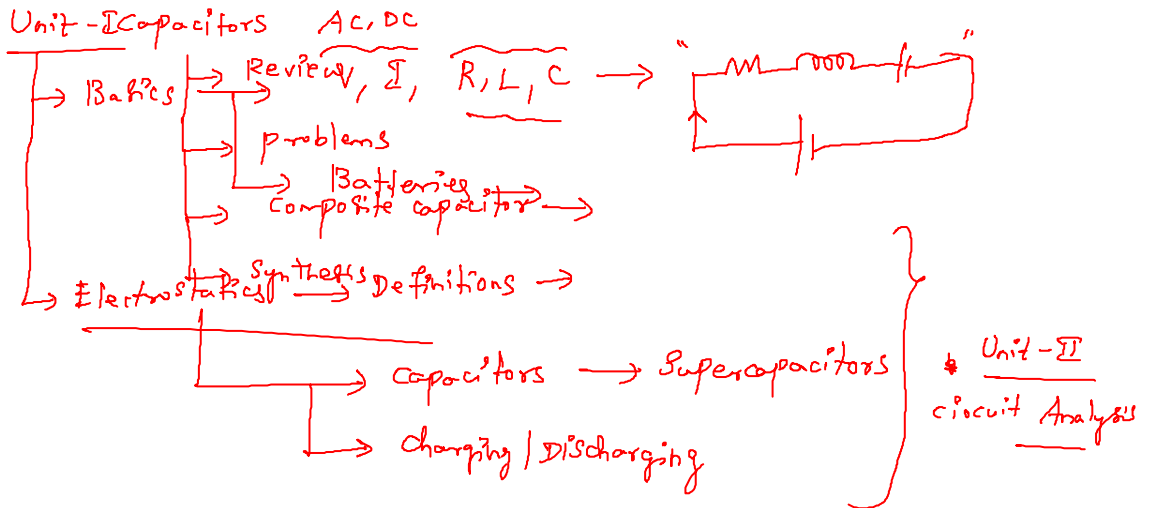 Unit-I Capacitors AC, DC
Basics Review V, I, R, L, C " "
Problems
Batteries
Composite capacitor
Synthesis
Electrostatics Definitions
Capacitors Supercapacitors
Charging/Discharging
* Unit-II
Circuit Analysis